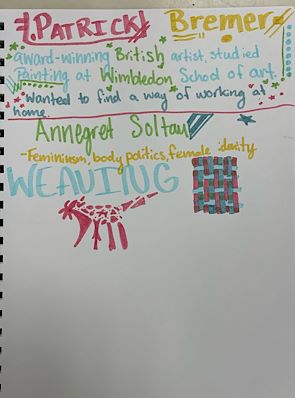 1. PATRICK Bremer
award-winning British artist, studied
Painting at Wimbledon School of art.
Wanted to find a way of working at
home.
Annegret Soltau
-Femininism, body politics, female idenity
WEAVING